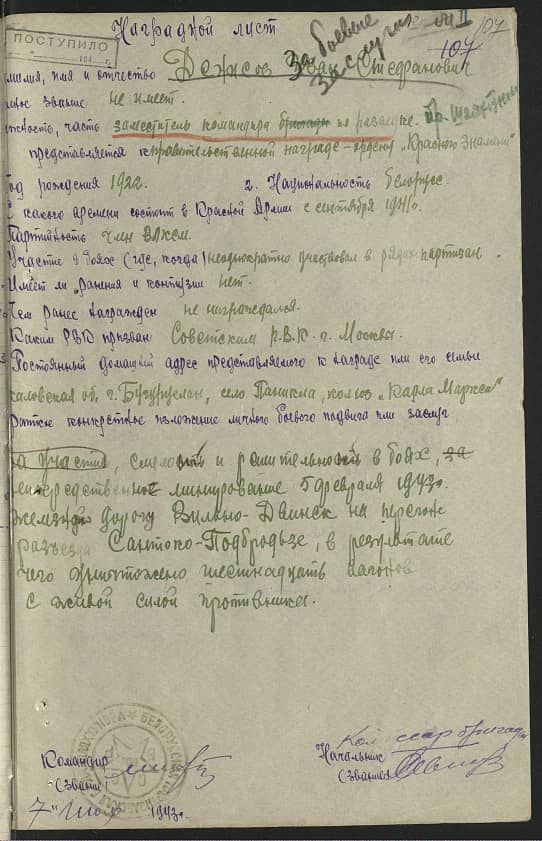 107
107
Наградной лист
ПОСТУПИЛО
За боевые
заслуги
Денисов Иван Стефанович
милия, имя и отчество
ное звание не имеет.
жность, часть заместитель командира бригады по разведке.
представляется к правительственной награде - ордену "Красного Знамени"
Год рождения 1922. 2. Национальность белорус.
С какого времени состоит в Красной Армии с сентября 1941 г.
Партийность член ВЛКСМ.
Участие в боях (где, когда) неоднократно участвовал в рядах партизан.
Имеет ли ранения и контузии нет.
Чем ранее награжден не награждался.
Каким РВК призван Советским Р.В.К. г. Москвы.
Постоянный домашний адрес представляемого к награде или его семьи
каловская об., г. Бугуруслан, село Паникла, колхоз "Карла Маркса"
раткое конкретное изложение личного боевого подвига или заслуг
за участие, смелость и решительность в боях, за
непосредственное минирование 5 февраля 1943 г.
железной дороги Вильно-Двинск на перегоне
разъезда Сантоко-Подбродьзе, в результате
чего уничтожено шестнадцать вагонов
с живой силой противника.
Командир
(Звание)
Ком. бригады
Начальник
(Звание)
"7" 1943 г.